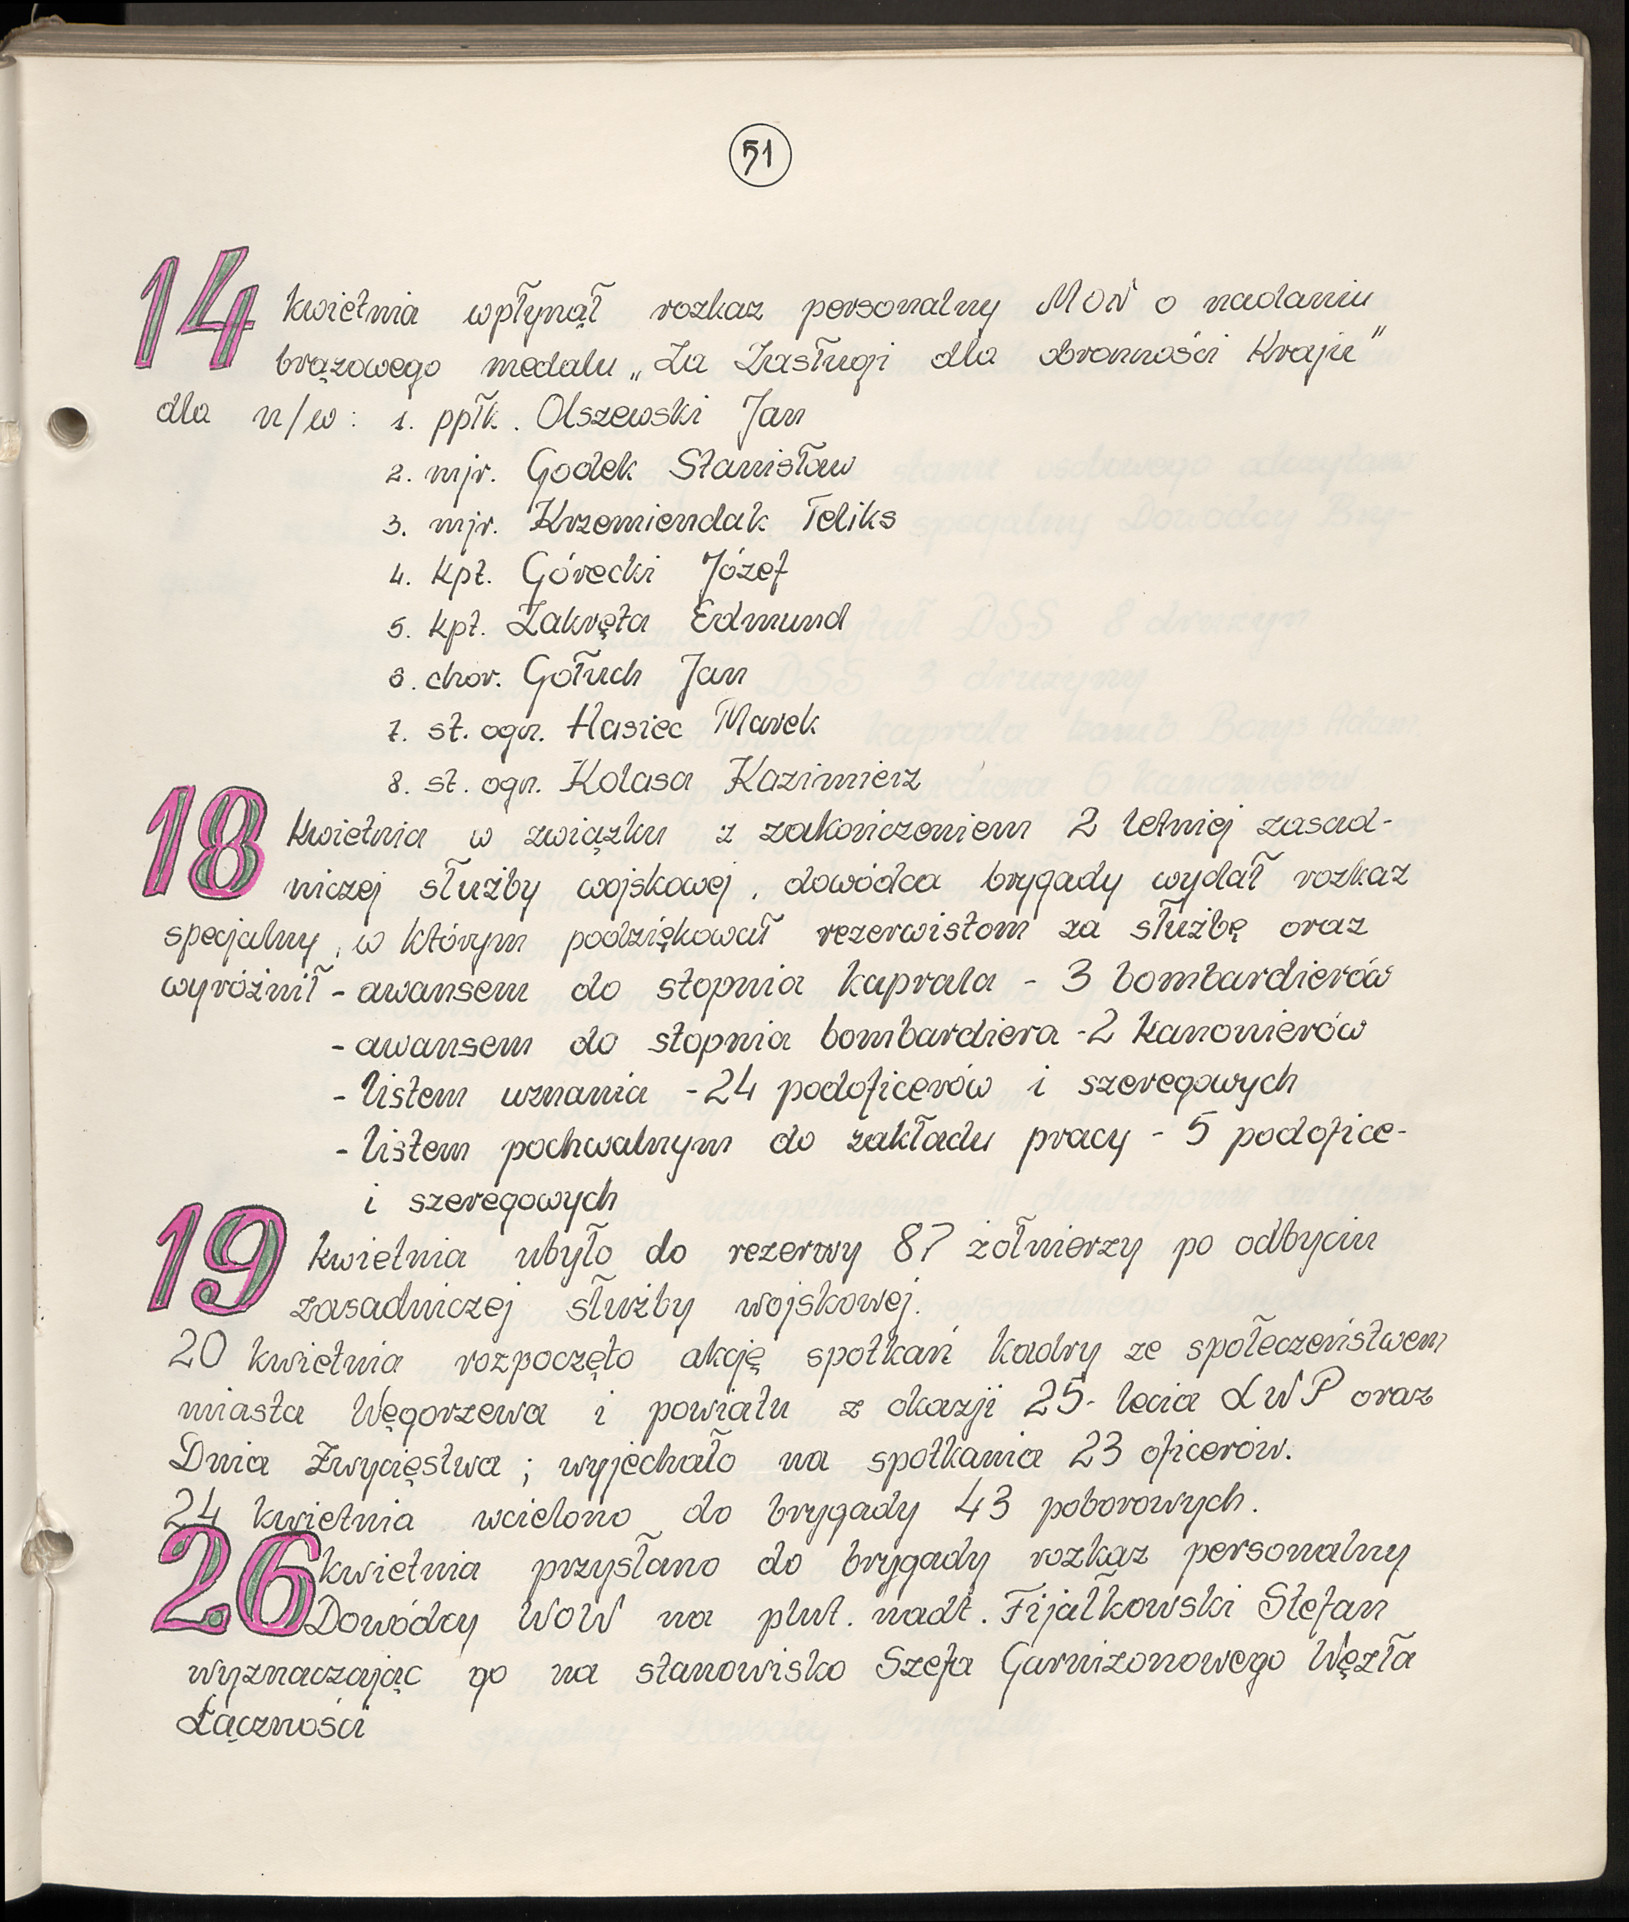 51
14 kwietnia wpłynął rozkaz personalny MON o nadaniu
brązowego medalu „Za Zasługi dla obronności Kraju"
dla n/w: 1. ppłk. Olszewski Jan
2. mjr. Godek Stanisław
3. mjr. Krzemiendak Feliks
4. kpt. Górecki Józef
5. kpt. Zakręta Edmund
6. chor. Gołuch Jan
7. st. ogn. Hasiec Marek
8. st. ogn. Kolasa Kazimierz
18 kwietnia w związku z zakończeniem 2 letniej zasad-
niczej służby wojskowej, dowódca brygady wydał rozkaz
specjalny, w którym podziękował rezerwistom za służbę oraz
wyróżnił - awansem do stopnia kaprala - 3 bombardierów
- awansem do stopnia bombardiera - 2 kanonierów
- listem uznania - 24 podoficerów i szeregowych
- listem pochwalnym do zakładu pracy - 5 podofice-
i szeregowych
19 kwietnia ubyło do rezerwy 87 żołnierzy po odbyciu
zasadniczej służby wojskowej.
20 kwietnia rozpoczęto akcję spotkań kadry ze społeczeństwem
miasta Węgorzewa i powiatu z okazji 25-lecia LWP oraz
Dnia Zwycięstwa; wyjechało na spotkania 23 oficerów.
24 kwietnia wcielono do brygady 43 poborowych.
26 kwietnia przysłano do brygady rozkaz personalny
Dowódcy WOW na plut. nadt. Fijałkowski Stefan
wyznaczając go na stanowisko Szefa Garnizonowego Węzła
Łączności